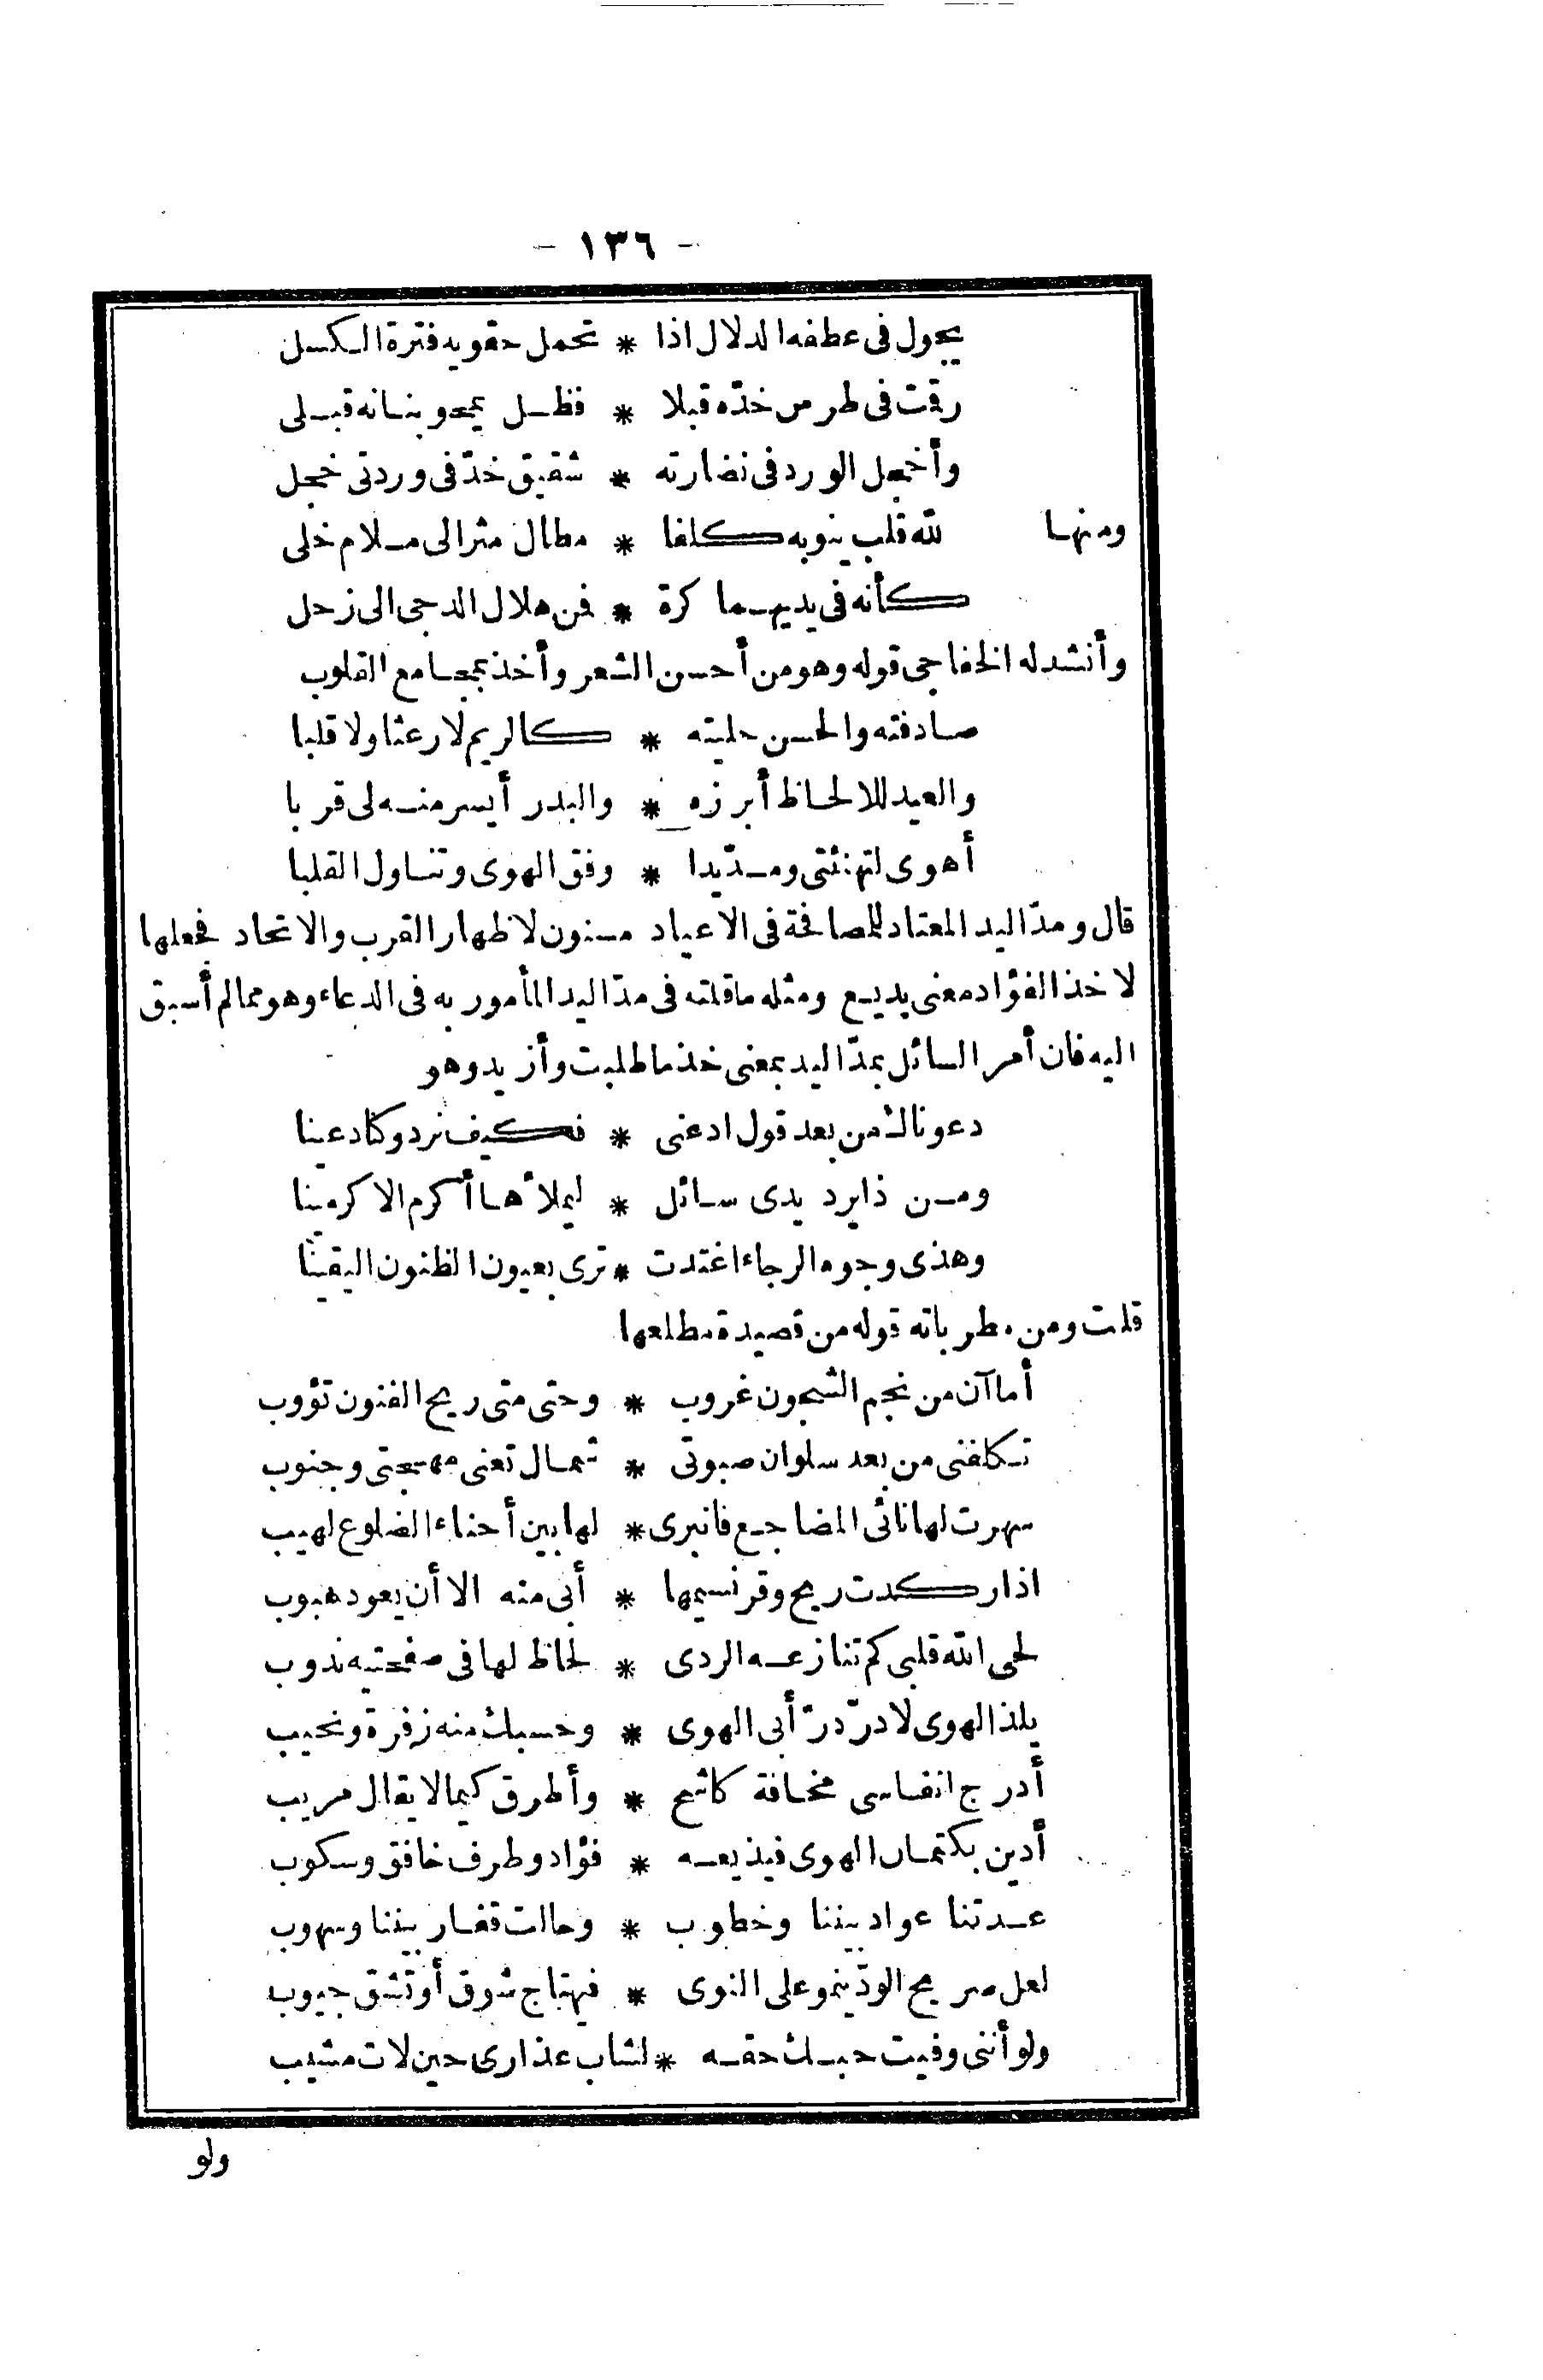 - ١٣٦ -
يجول فى عطفه الدلال اذا * تحمل حقويه فترة الكسل
رقمت فى طرس خدّه قبلا * فظل يمحو بنانه قبلى
وأخجل الورد فى نضارته * شقيق خدّ فى وردتى خجل
ومنها لله قلب ينوبه كلفا * مطال مثر الى ملام خلى
كأنه فى يديهما كرة * فمن هلال الدجى الى زحل
وأنشد له الخفاجى قوله وهو من أحسن الشعر وأخذ بمجامع القلوب
صادفته والحسن حليته * كالريم لا رعثا ولا قلبا
والعيد للالحاظ أبرزه * والبدر أيسر منه لى قربا
أهوى لتهنئتى ومدّ يدا * وفق الهوى وتناول القلبا
قال ومدّ اليد المعتاد للمصافحة فى الاعياد مسنون لاظهار القرب والاتحاد فجعلها
لاخذ الفؤاد معنى بديع ومثله ما قلته فى مدّ اليد المأمور به فى الدعاء وهو مما لم أسبق
اليه فان أمر السائل بمدّ اليد بمعنى خذ ما طلبت وأزيد وهو
دعوناك من بعد قول ادعنى * فكيف نرد وكنا دعينا
ومن ذا يرد يدى سائل * ليملأها أكرم الاكرمينا
وهذى وجوه الرجاء اغتدت * ترى بعيون الظنون اليقينا
قلت ومن مطرباته قوله من قصيدة مطلعها
أما آن من نجم الشجون غروب * وحتى متى ريح الفنون تؤوب
تكلفنى من بعد سلوان صبوتى * شمال تعنى مهجتى وجنوب
سهرت لها نائى المضاجع فانبرى * لها بين أحناء الضلوع لهيب
اذا ركدت ريح وقر نسيمها * أبى منه الا أن يعود هبوب
لحى الله قلبى كم تنازعه الردى * لحاظ لها فى صفحتيه ندوب
يلذ الهوى لا درّ درّ أبى الهوى * وحسبك منه زفرة ونحيب
أدرج انفاسى مخافة كاشح * وأطرق كيما لا يقال مريب
أدين بكتمان الهوى فيذيعه * فؤاد وطرف خافق وسكوب
عدتنا عواد بيننا وخطوب * وحالت قفار بيننا وسهوب
لعل صريح الودّ ينمو على النوى * فيهتاج شوق أو تشق جيوب
ولو أننى وفيت حبك حقه * لشاب عذارى حين لات مشيب
ولو